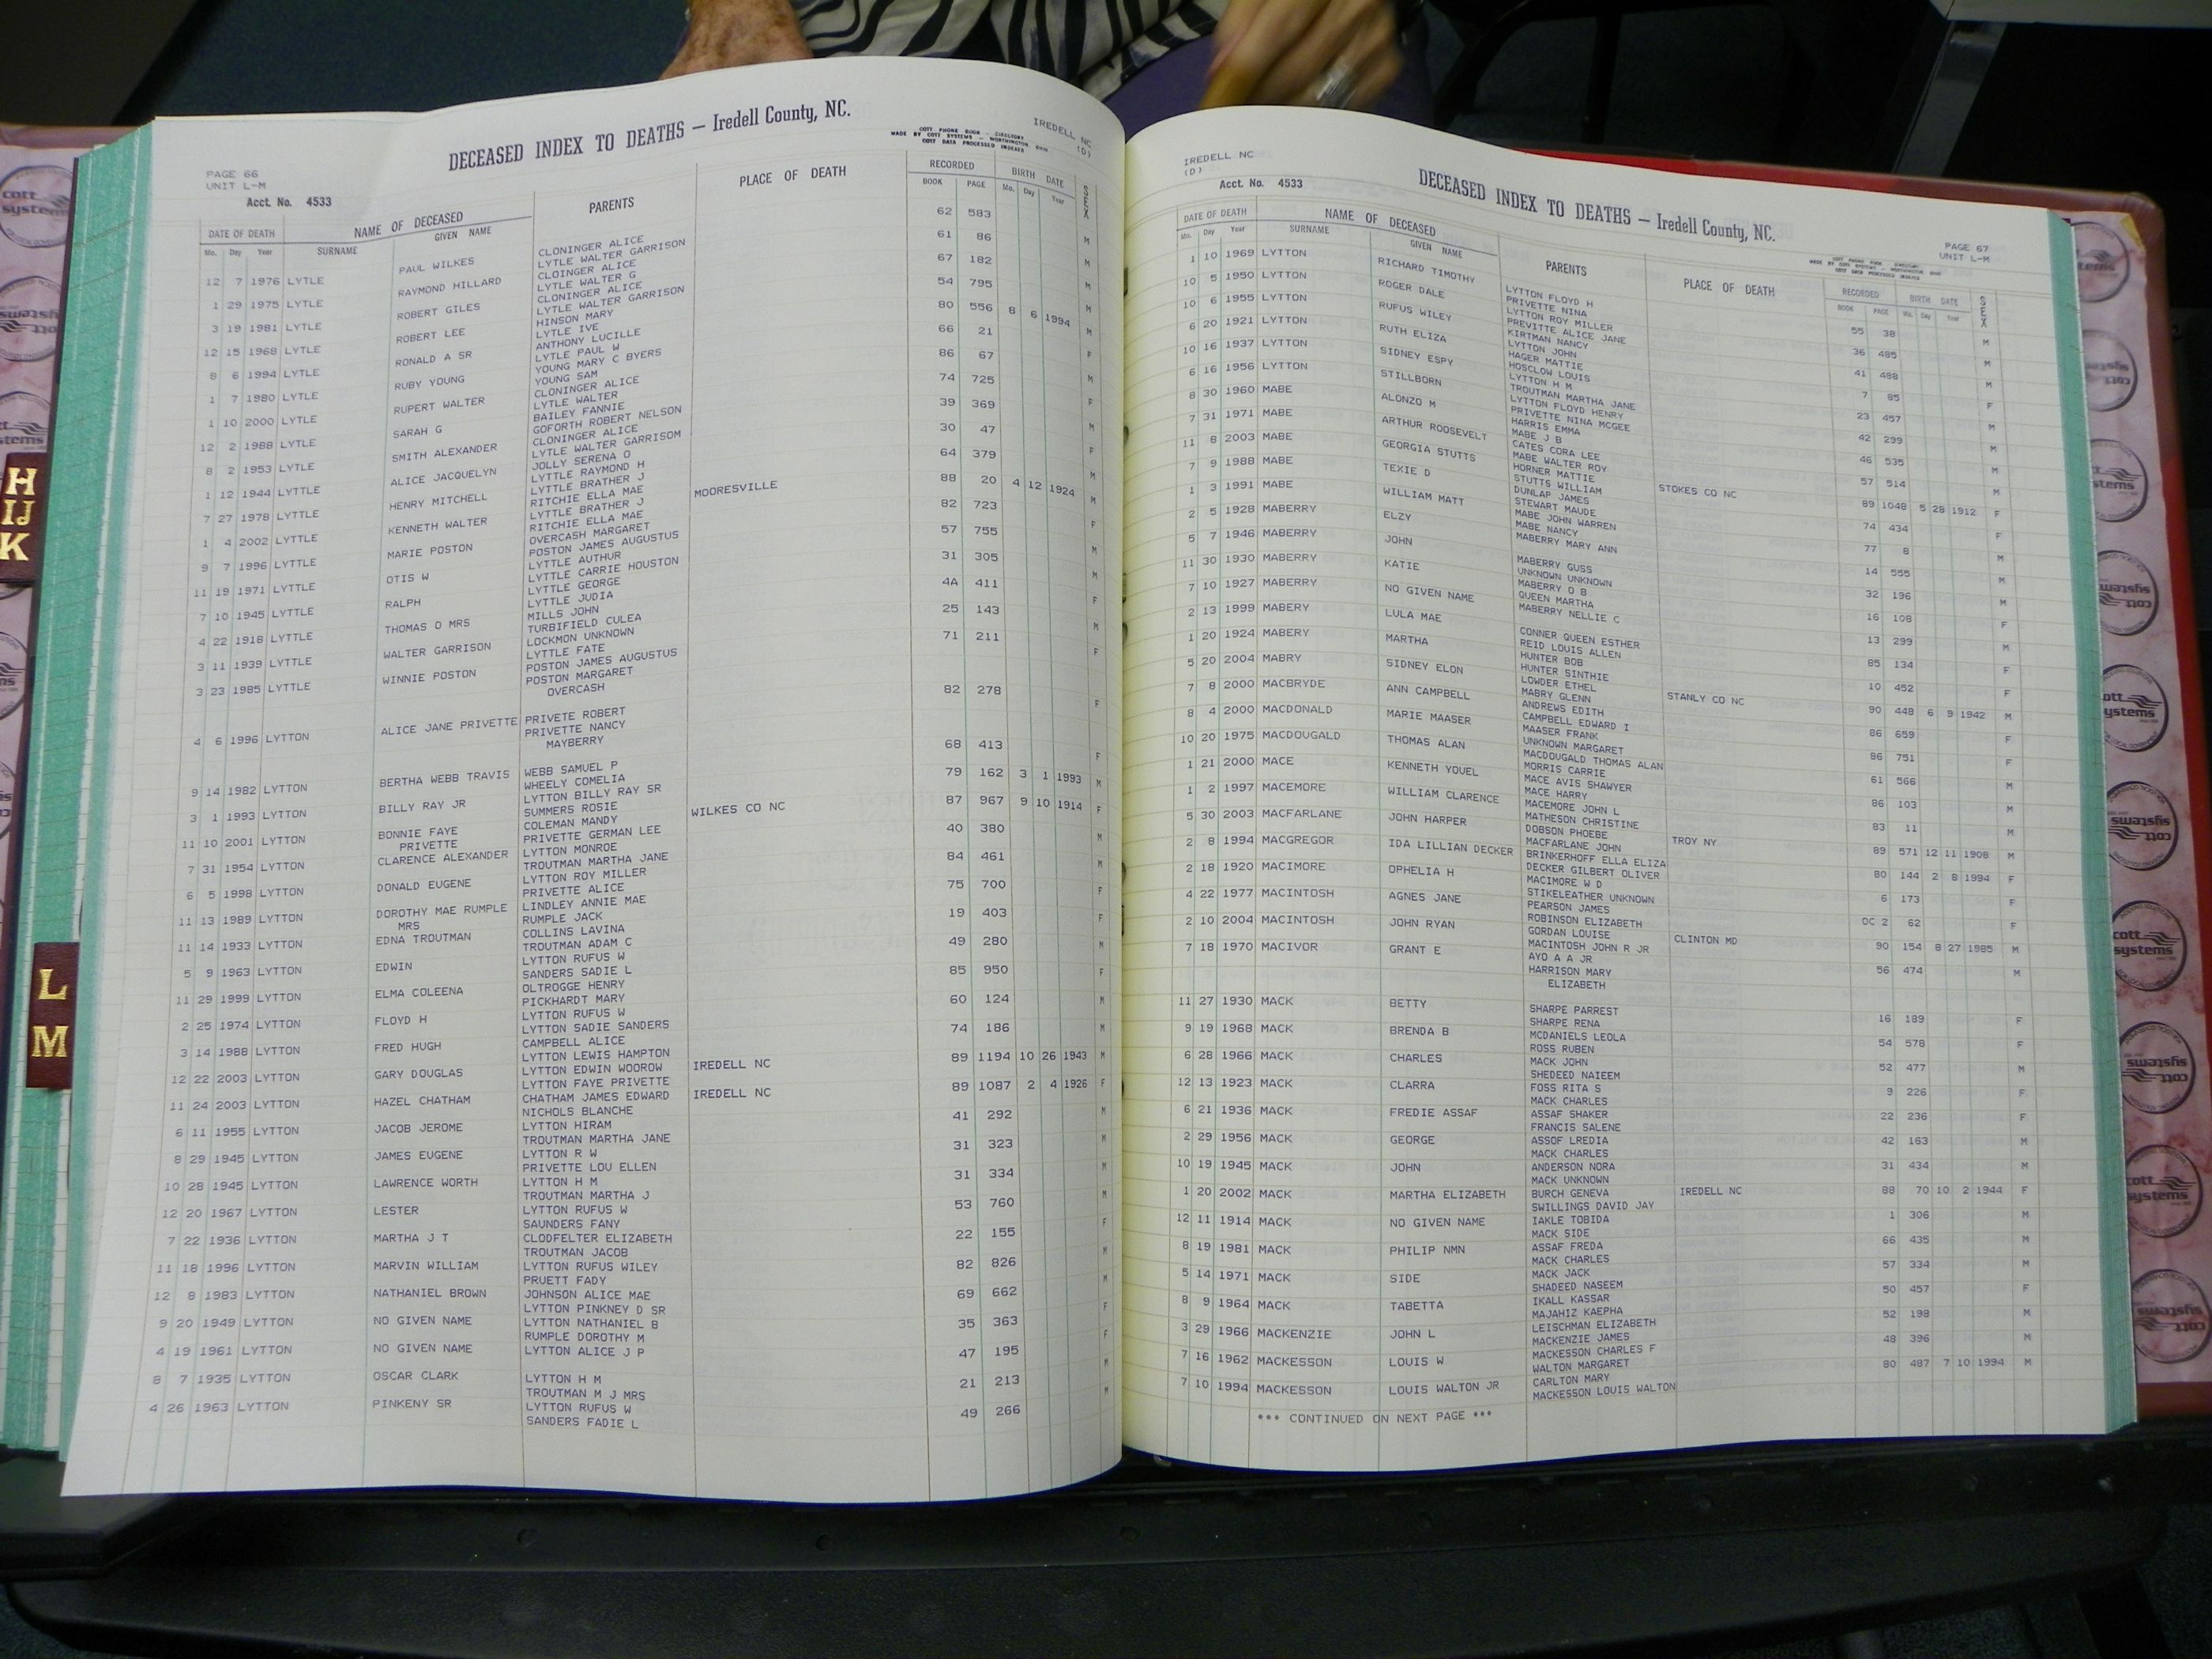 PAGE 66
UNIT L-M
IREDELL NC
(D)
DECEASED INDEX TO DEATHS — Iredell County, NC.
COTT PHONE BOOK - DIRECTORY
MADE BY COTT SYSTEMS - WORTHINGTON, OHIO
COTT DATA PROCESSED INDEXES
Acct. No. 4533
DATE OF DEATH NAME OF DECEASED PARENTS PLACE OF DEATH RECORDED BIRTH DATE SEX
Mo. Day Year SURNAME GIVEN NAME BOOK PAGE Mo. Day Year
12 7 1976 LYTLE PAUL WILKES CLONINGER ALICE 62 583 M
LYTLE WALTER GARRISON
1 29 1975 LYTLE RAYMOND HILLARD CLOINGER ALICE 61 86 M
LYTLE WALTER G
3 19 1981 LYTLE ROBERT GILES CLONINGER ALICE 67 182 M
LYTLE WALTER GARRISON
12 15 1968 LYTLE ROBERT LEE HINSON MARY 54 795 M
LYTLE IVE
8 6 1994 LYTLE RONALD A SR ANTHONY LUCILLE 80 556 8 6 1994 M
LYTLE PAUL W
1 7 1980 LYTLE RUBY YOUNG YOUNG MARY C BYERS 66 21 F
YOUNG SAM
1 10 2000 LYTLE RUPERT WALTER CLONINGER ALICE 86 67 M
LYTLE WALTER
12 2 1988 LYTLE SARAH G BAILEY FANNIE 74 725 F
GOFORTH ROBERT NELSON
8 2 1953 LYTLE SMITH ALEXANDER CLONINGER ALICE 39 369 M
LYTLE WALTER GARRISOM
1 12 1944 LYTTLE ALICE JACQUELYN JOLLY SERENA O 30 47 F
LYTTLE RAYMOND H
7 27 1978 LYTTLE HENRY MITCHELL LYTTLE BRATHER J 64 379 M
RITCHIE ELLA MAE
1 4 2002 LYTTLE KENNETH WALTER LYTTLE BRATHER J MOORESVILLE 88 20 4 12 1924 M
RITCHIE ELLA MAE
9 7 1996 LYTTLE MARIE POSTON OVERCASH MARGARET 82 723 F
POSTON JAMES AUGUSTUS
11 19 1971 LYTTLE OTIS W LYTTLE AUTHUR 57 755 M
LYTTLE CARRIE HOUSTON
7 10 1945 LYTTLE RALPH LYTTLE GEORGE 31 305 M
LYTTLE JUDIA
4 22 1918 LYTTLE THOMAS O MRS MILLS JOHN 4A 411 F
TURBIFIELD CULEA
3 11 1939 LYTTLE WALTER GARRISON LOCKMON UNKNOWN 25 143 M
LYTTLE FATE
3 23 1985 LYTTLE WINNIE POSTON POSTON JAMES AUGUSTUS 71 211 F
POSTON MARGARET
OVERCASH
4 6 1996 LYTTON ALICE JANE PRIVETTE PRIVETE ROBERT 82 278 F
PRIVETTE NANCY
MAYBERRY
9 14 1982 LYTTON BERTHA WEBB TRAVIS WEBB SAMUEL P 68 413 F
WHEELY COMELIA
3 1 1993 LYTTON BILLY RAY JR LYTTON BILLY RAY SR 79 162 3 1 1993 M
SUMMERS ROSIE
11 10 2001 LYTTON BONNIE FAYE COLEMAN MANDY WILKES CO NC 87 967 9 10 1914 F
PRIVETTE PRIVETTE GERMAN LEE
7 31 1954 LYTTON CLARENCE ALEXANDER LYTTON MONROE 40 380 M
TROUTMAN MARTHA JANE
6 5 1998 LYTTON DONALD EUGENE LYTTON ROY MILLER 84 461 M
PRIVETTE ALICE
11 13 1989 LYTTON DOROTHY MAE RUMPLE LINDLEY ANNIE MAE 75 700 F
MRS RUMPLE JACK
11 14 1933 LYTTON EDNA TROUTMAN COLLINS LAVINA 19 403 F
TROUTMAN ADAM C
5 9 1963 LYTTON EDWIN LYTTON RUFUS W 49 280 M
SANDERS SADIE L
11 29 1999 LYTTON ELMA COLEENA OLTROGGE HENRY 85 950 F
PICKHARDT MARY
2 25 1974 LYTTON FLOYD H LYTTON RUFUS W 60 124 M
LYTTON SADIE SANDERS
3 14 1988 LYTTON FRED HUGH CAMPBELL ALICE 74 186 M
LYTTON LEWIS HAMPTON
12 22 2003 LYTTON GARY DOUGLAS LYTTON EDWIN WOOROW IREDELL NC 89 1194 10 26 1943 M
LYTTON FAYE PRIVETTE
11 24 2003 LYTTON HAZEL CHATHAM CHATHAM JAMES EDWARD IREDELL NC 89 1087 2 4 1926 F
NICHOLS BLANCHE
6 11 1955 LYTTON JACOB JEROME LYTTON HIRAM 41 292 M
TROUTMAN MARTHA JANE
8 29 1945 LYTTON JAMES EUGENE LYTTON R W 31 323 M
PRIVETTE LOU ELLEN
10 28 1945 LYTTON LAWRENCE WORTH LYTTON H M 31 334 M
TROUTMAN MARTHA J
12 20 1967 LYTTON LESTER LYTTON RUFUS W 53 760 M
SAUNDERS FANY
7 22 1936 LYTTON MARTHA J T CLODFELTER ELIZABETH 22 155 F
TROUTMAN JACOB
11 18 1996 LYTTON MARVIN WILLIAM LYTTON RUFUS WILEY 82 826 M
PRUETT FADY
12 8 1983 LYTTON NATHANIEL BROWN JOHNSON ALICE MAE 69 662 M
LYTTON PINKNEY D SR
9 20 1949 LYTTON NO GIVEN NAME LYTTON NATHANIEL B 35 363 F
RUMPLE DOROTHY M
4 19 1961 LYTTON NO GIVEN NAME LYTTON ALICE J P 47 195 F
8 7 1935 LYTTON OSCAR CLARK LYTTON H M 21 213 M
TROUTMAN M J MRS
4 26 1963 LYTTON PINKENY SR LYTTON RUFUS W 49 266 M
SANDERS FADIE L
IREDELL NC
(D)
PAGE 67
UNIT L-M
DECEASED INDEX TO DEATHS — Iredell County, NC.
Acct. No. 4533
DATE OF DEATH NAME OF DECEASED PARENTS PLACE OF DEATH RECORDED BIRTH DATE SEX
Mo. Day Year SURNAME GIVEN NAME BOOK PAGE Mo. Day Year
1 10 1969 LYTTON RICHARD TIMOTHY LYTTON FLOYD H 55 38 M
PRIVETTE NINA
10 5 1950 LYTTON ROGER DALE LYTTON ROY MILLER 36 485 M
PREVITTE ALICE JANE
10 6 1955 LYTTON RUFUS WILEY KIRTMAN NANCY 41 488 M
LYTTON JOHN
6 20 1921 LYTTON RUTH ELIZA HAGER MATTIE 7 85 F
HOSCLOW LOUIS
10 16 1937 LYTTON SIDNEY ESPY LYTTON H M 23 457 M
TROUTMAN MARTHA JANE
6 16 1956 LYTTON STILLBORN LYTTON FLOYD HENRY 42 299 M
PRIVETTE NINA MCGEE
8 30 1960 MABE ALONZO M HARRIS EMMA 46 535 M
MABE J B
7 31 1971 MABE ARTHUR ROOSEVELT CATES CORA LEE 57 514 M
MABE WALTER ROY
11 8 2003 MABE GEORGIA STUTTS HORNER MATTIE STOKES CO NC 89 1048 5 28 1912 F
STUTTS WILLIAM
7 9 1988 MABE TEXIE D DUNLAP JAMES 74 434 F
STEWART MAUDE
1 3 1991 MABE WILLIAM MATT MABE JOHN WARREN 77 8 M
MABE NANCY
2 5 1928 MABERRY ELZY MABERRY MARY ANN 14 555 M
5 7 1946 MABERRY JOHN MABERRY GUSS 32 196 M
UNKNOWN UNKNOWN
11 30 1930 MABERRY KATIE MABERRY O B 16 108 F
QUEEN MARTHA
7 10 1927 MABERRY NO GIVEN NAME MABERRY NELLIE C 13 299 M
2 13 1999 MABERY LULA MAE CONNER QUEEN ESTHER 85 134 F
REID LOUIS ALLEN
1 20 1924 MABERY MARTHA HUNTER BOB 10 452 F
HUNTER SINTHIE
5 20 2004 MABRY SIDNEY ELON LOWDER ETHEL STANLY CO NC 90 448 6 9 1942 M
MABRY GLENN
7 8 2000 MACBRYDE ANN CAMPBELL ANDREWS EDITH 86 659 F
CAMPBELL EDWARD I
8 4 2000 MACDONALD MARIE MAASER MAASER FRANK 86 751 F
UNKNOWN MARGARET
10 20 1975 MACDOUGALD THOMAS ALAN MACDOUGALD THOMAS ALAN 61 566 M
MORRIS CARRIE
1 21 2000 MACE KENNETH YOUEL MACE AVIS SHAWYER 86 103 M
MACE HARRY
1 2 1997 MACEMORE WILLIAM CLARENCE MACEMORE JOHN L 83 11 M
MATHESON CHRISTINE
5 30 2003 MACFARLANE JOHN HARPER DOBSON PHOEBE TROY NY 89 571 12 11 1908 M
MACFARLANE JOHN
2 8 1994 MACGREGOR IDA LILLIAN DECKER BRINKERHOFF ELLA ELIZA 80 144 2 8 1994 F
DECKER GILBERT OLIVER
2 18 1920 MACIMORE OPHELIA H MACIMORE W D 6 173 F
STIKELEATHER UNKNOWN
4 22 1977 MACINTOSH AGNES JANE PEARSON JAMES DC 2 62 F
ROBINSON ELIZABETH
2 10 2004 MACINTOSH JOHN RYAN GORDAN LOUISE CLINTON MD 90 154 8 27 1985 M
MACINTOSH JOHN R JR
7 18 1970 MACIVOR GRANT E AYO A A JR 56 474 M
HARRISON MARY
ELIZABETH
11 27 1930 MACK BETTY SHARPE PARREST 16 189 F
SHARPE RENA
9 19 1968 MACK BRENDA B MCDANIELS LEOLA 54 578 F
ROSS RUBEN
6 28 1966 MACK CHARLES MACK JOHN 52 477 M
SHEDEED NAIEEM
12 13 1923 MACK CLARRA FOSS RITA S 9 226 F
MACK CHARLES
6 21 1936 MACK FREDIE ASSAF ASSAF SHAKER 22 236 F
FRANCIS SALENE
2 29 1956 MACK GEORGE ASSOF LREDIA 42 163 M
MACK CHARLES
10 19 1945 MACK JOHN ANDERSON NORA 31 434 M
MACK UNKNOWN
1 20 2002 MACK MARTHA ELIZABETH BURCH GENEVA IREDELL NC 88 70 10 2 1944 F
SWILLINGS DAVID JAY
12 11 1914 MACK NO GIVEN NAME IAKLE TOBIDA 1 306 M
MACK SIDE
8 19 1981 MACK PHILIP NMN ASSAF FREDA 66 435 M
MACK CHARLES
5 14 1971 MACK SIDE MACK JACK 57 334 M
SHADEED NASEEM
8 9 1964 MACK TABETTA IKALL KASSAR 50 457 F
MAJAHIZ KAEPHA
3 29 1966 MACKENZIE JOHN L LEISCHMAN ELIZABETH 52 198 M
MACKENZIE JAMES
7 16 1962 MACKESSON LOUIS W MACKESSON CHARLES F 48 396 M
WALTON MARGARET
7 10 1994 MACKESSON LOUIS WALTON JR CARLTON MARY 80 487 7 10 1994 M
MACKESSON LOUIS WALTON
*** CONTINUED ON NEXT PAGE ***
H
IJ
K
L
M
cott
systems